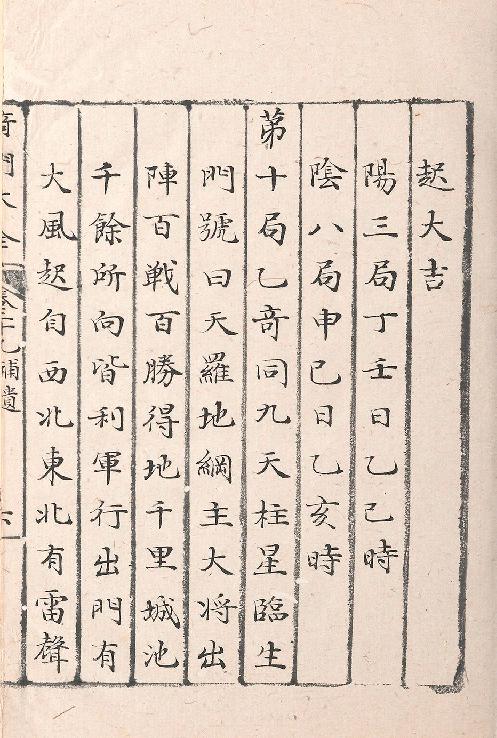 起大吉
陽三局丁壬日乙巳時
陰八局申己日乙亥時
第十局乙竒同九天柱星臨生
門號曰天羅地網主大将出
陣百戦百勝得地千里城池
千餘所向皆利軍行出門有
大風起自西北東北有雷聲
竒門大全
乙補遺